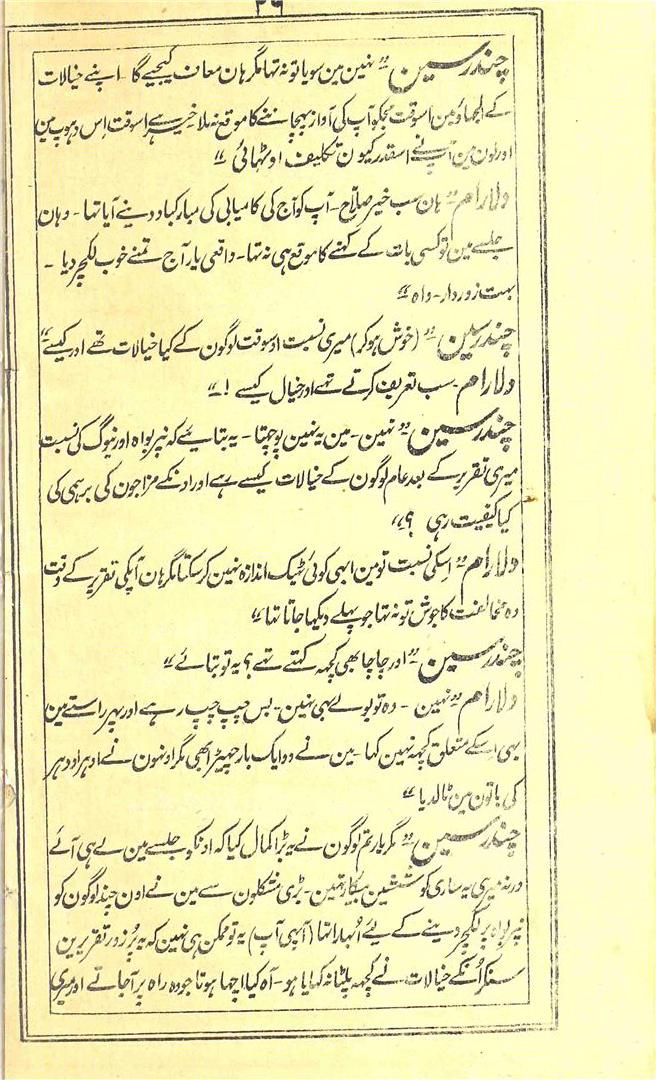 ۲۶
چندرسین “ نہین مین سویا تو نہ تہا مگر ہان معاف کیجیے گا۔ اپنے خیالات
کے الجہاؤ مین اسوقت مجکو آپ کی آواز پہچاننے کا موقع نہ ملا۔ خیر ہے اسوقت اِس دہوپ مین
اور لون مین آپ نے اسقدر کیون تکلیف اوٹھائی ”
دلارام “ ہان سب خیر صلاح۔ آپ کو آج کی کامیابی کی مبارکباد دینے آیا تہا۔ وہان
جلسے مین تو کسی بات کے کہنے کا موقع ہی نہ تہا۔ واقعی یار آج تمنے خوب لکچر دیا۔
بہت زوردار۔ واہ ”
چندرسین “ (خوش ہوکر) میری نسبت اوسوقت لوگون کے کیا خیالات تھے اور کیسے ”
دلارام۔ سب تعریف کرتے تہے اور خیال کیسے !۔ ”
چندرسین “ نہین۔ مین یہ نہین پوچہتا۔ یہ بتایئے کہ نیرپواہ اور نیوگ کی نسبت
میری تقریر کے بعد عام لوگون کے خیالات کیسے رہے اور اونکے مزاجون کی برہمی کی
کیا کیفیت رہی ؟ ”
دلارام “ اِسکی نسبت تو مین ابہی کوئی ٹھیک اندازہ نہین کر سکتا مگر ہان آپکی تقریر کے وقت
وہ مخالفت کا جوش تو نہ تہا جو پہلے دیکہا جاتا تہا ”
چندرسین “ اور چاچا بھی کچہ کہتے تہے؟ یہ تو بتائے ”
دلارام “ نہین۔ وہ تو بولے ہی نہین۔ بس چپ چپ رہے اور پہر راستے مین
بہی اسکے متعلق کچہ نہین کہا۔ مین نے دو ایک بار چھیڑا بھی مگر اونہون نے ادہر اودہر
کی باتون مین ٹالدیا ”
چندرسین “ مگر یار تم لوگون نے یہ بڑا کمال کیا کہ اونکو جلسے مین لے ہی آئے
ورنہ میری یہ ساری کوششین بیکار تہین۔ بڑی مشکلون سے مین نے اون چند لوگون کو
نیرپواہ پر لکچر دینے کے لئے اُبہارا تہا (آپہی آپ) یہ تو ممکن ہی نہین کہ یہ پُر زور تقریرین
سنکر اُنکے خیالات نے کچہ پلٹا نہ کہایا ہو۔ آہ کیا اچہا ہوتا جو وہ راہ پر آجاتے اور میری